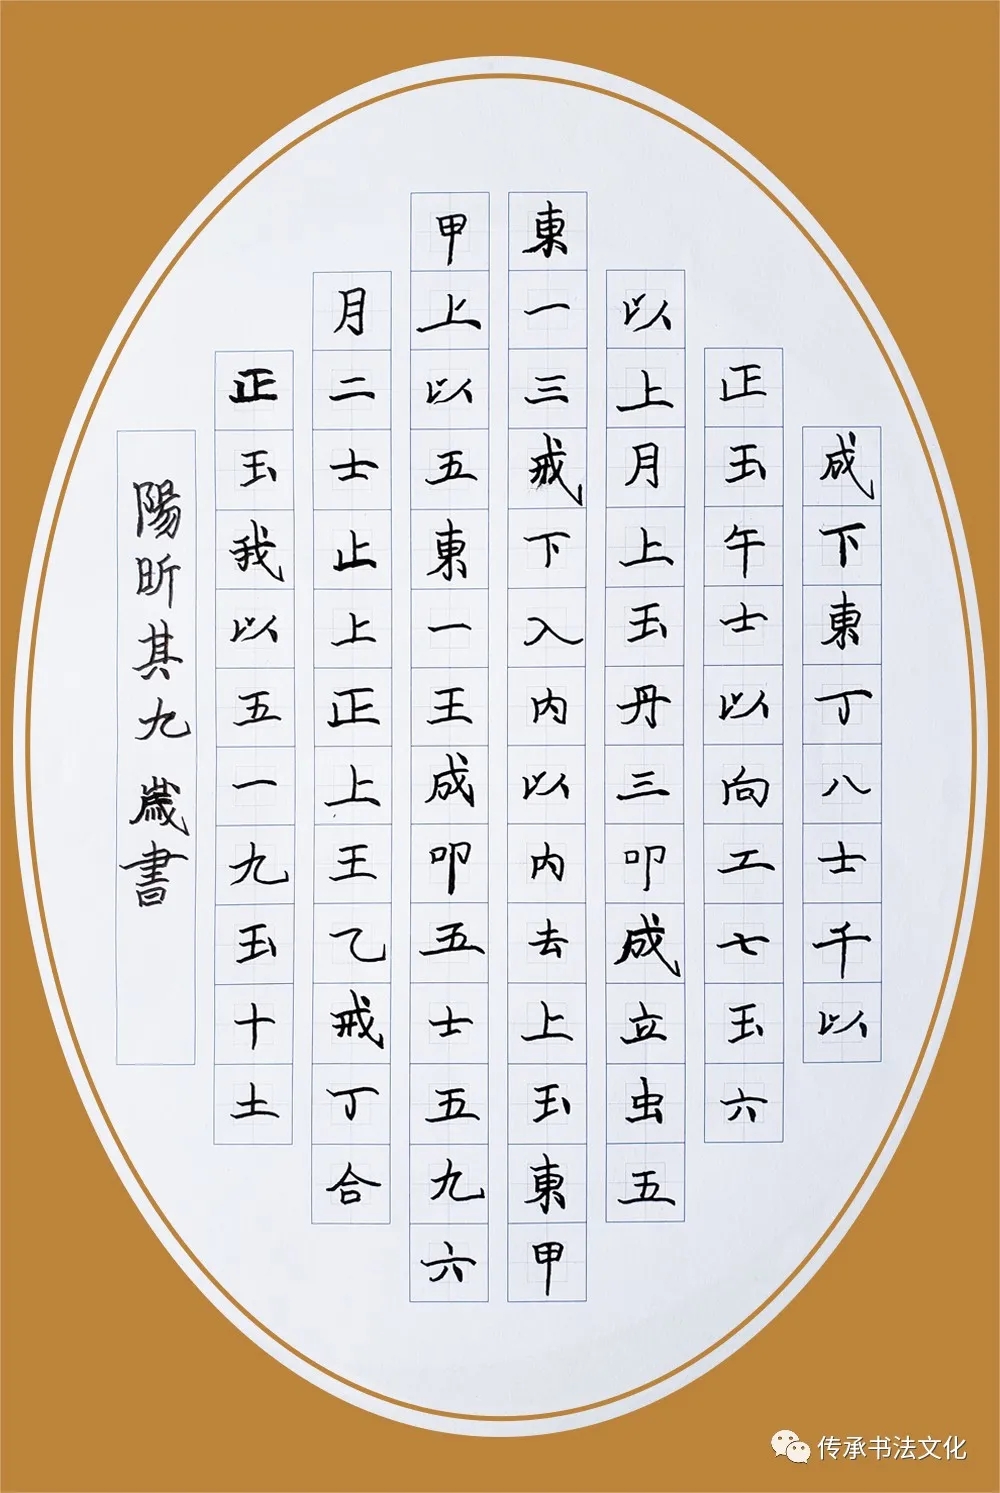 成下東丁八士千以
正玉午士以向工七玉六
以上月上玉丹三叩成立虫五
東一三戒下入内以内去上玉東甲
甲上以五東一王成叩五士五九六
月二士止上正上王乙戒丁合
正玉我以五一九玉十土
陽昕其九歲書
传承书法文化